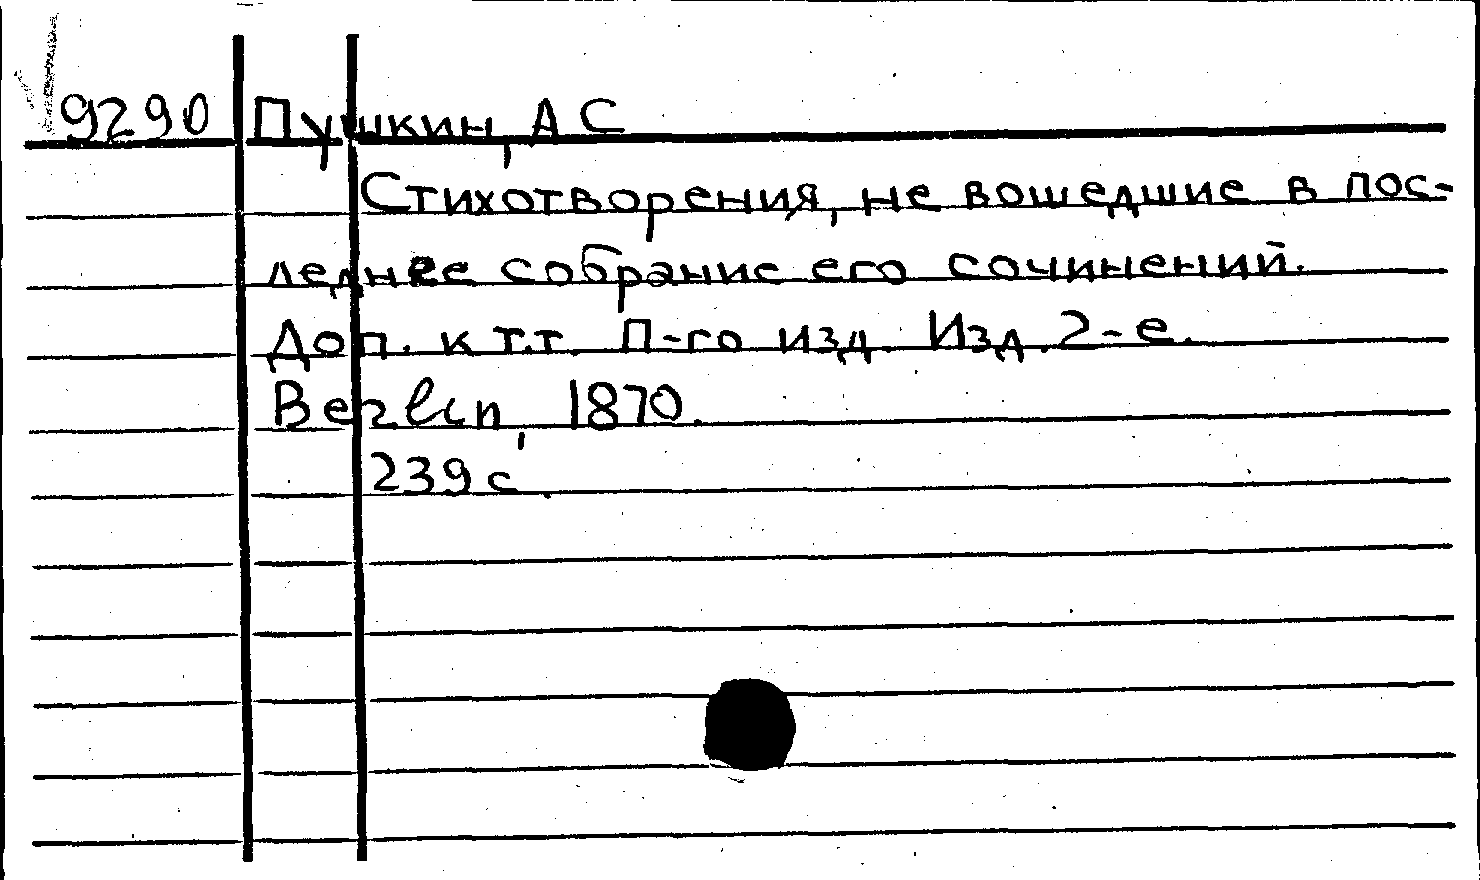 9290 Пушкин, А С
Стихотворения, не вошедшие в пос-
леднее собрание его сочинений.
Доп. к т.т. П-го изд. Изд. 2-е.
Berlin, 1870.
239 с.